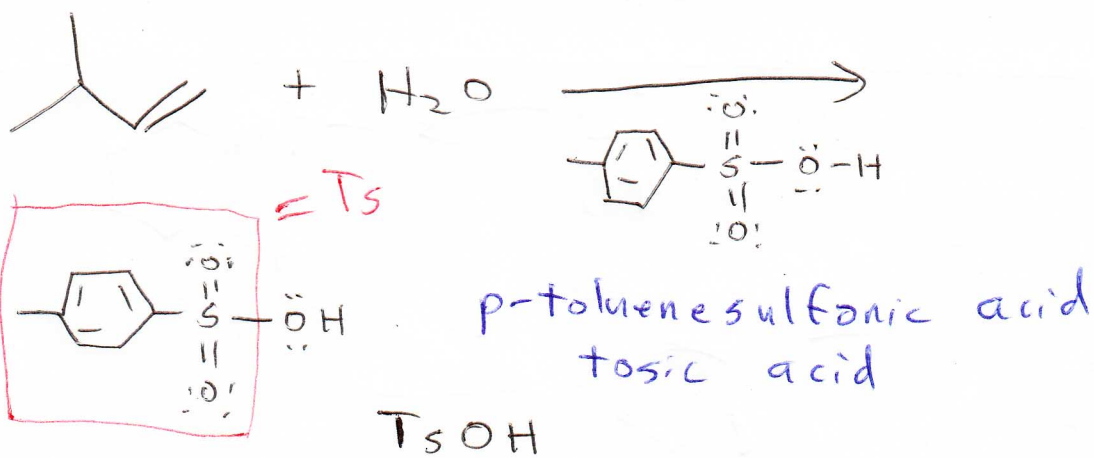 + H₂O
:O:
||
S — Ö — H
||
:O:
= Ts
:O:
||
S — ÖH
||
:O:
p-toluenesulfonic acid
tosic acid
TsOH